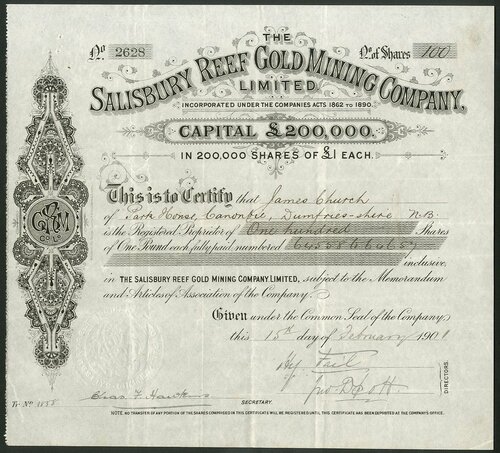 THE
No 2628 No. of Shares 100
SALISBURY REEF GOLD MINING COMPANY,
LIMITED.
INCORPORATED UNDER THE COMPANIES ACTS 1862 TO 1890.
CAPITAL £200,000.
IN 200,000 SHARES OF £1 EACH.
This is to Certify that James Church
of Park House, Canonbie, Dumfries-shire N.B.
is the Registered Proprietor of One hundred Shares
of One Pound each fully paid, numbered
inclusive,
in THE SALISBURY REEF GOLD MINING COMPANY, LIMITED, subject to the Memorandum
and Articles of Association of the Company.
Given under the Common Seal of the Company,
this 15th day of February 1901
DIRECTORS.
Chas. F. Hawkins
SECRETARY.
Tr. No 1858
NOTE. NO TRANSFER OF ANY PORTION OF THE SHARES COMPRISED IN THIS CERTIFICATE WILL BE REGISTERED UNTIL THIS CERTIFICATE HAS BEEN DEPOSITED AT THE COMPANY'S OFFICE.